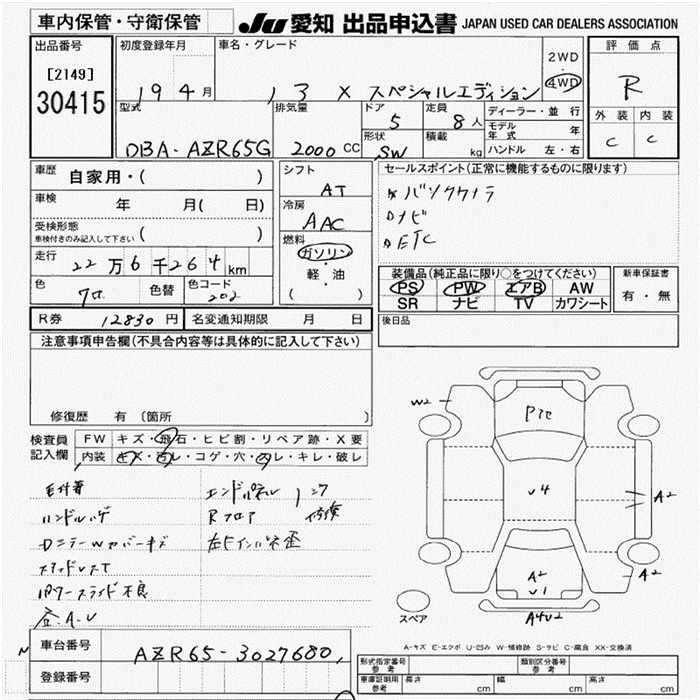 車内保管・守衛保管
JU 愛知 出品申込書 JAPAN USED CAR DEALERS ASSOCIATION
出品番号
[2149]
30415
初度登録年月
19 4 月
車名・グレード
X スペシャルエディション
2WD
・
4WD
評価点
R
外装 内装
C C
型式
DBA-AZR65G
排気量
2000 CC
ドア
5
定員
8 人
形状
SW
積載
kg
ディーラー・並行
モデル年式 年
ハンドル 左・右
車歴
自家用・( )
車検
年 月( 日)
受検形態
車検付きのみ記入して下さい ( )
走行
22 万 6 千 264 km
色
クロ
色替
色コード
202
シフト
AT
冷房
AAC
燃料
ガソリン
・
軽・油
( )
セールスポイント(正常に機能するものに限ります)
バックカメラ
ナビ
ETC
装備品(純正品に限り○をつけてください)
PS PW エアB AW
SR ナビ TV カワシート
新車保証書
有・無
後日品
R券 12830 円
名変通知期限 月 日
注意事項申告欄(不具合内容等は具体的に記入して下さい)
修復歴 有 (箇所 )
検査員
記入欄
FW キズ・飛石・ヒビ割・リペア跡・X要
内装 キズ・汚レ・コゲ・穴・スレ・キレ・破レ
エンドパネル
ハンドルハゲ
Rフロア
修換
パワースライド不良
W2
Pﾅﾋ
U4
A2
A2
A2
U1
A4U2
スペア
A-キズ E-エクボ U-凹み W-補修跡 S-サビ C-腐食 XX-交換済
車台番号
AZR65-3027680
登録番号
形式指定番号
参考
類別区分番号
参考
車庫証明用
参考
長さ cm
幅 cm
高さ cm